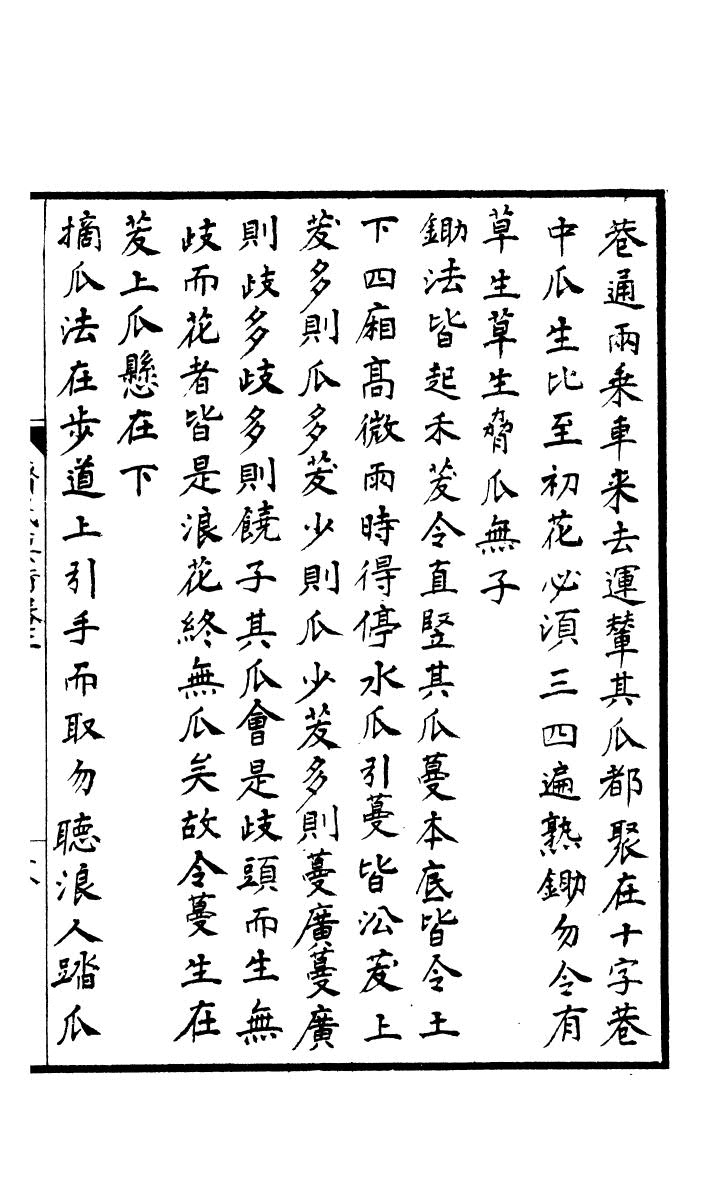 巷通兩乘車来去運輦其瓜都聚在十字巷
中瓜生比至初花必湏三四遍熟鋤勿令有
草生草生脅瓜無子
鋤法皆起禾茇令直竪其瓜蔓本底皆令土
下四廂髙微雨時得停水瓜引蔓皆㳂茇上
茇多則瓜多茇少則瓜少茇多則蔓廣蔓廣
則歧多歧多則饒子其瓜會是歧頭而生無
歧而花者皆是浪花終無瓜矣故令蔓生在
茇上瓜懸在下
摘瓜法在步道上引手而取勿聽浪人踏瓜